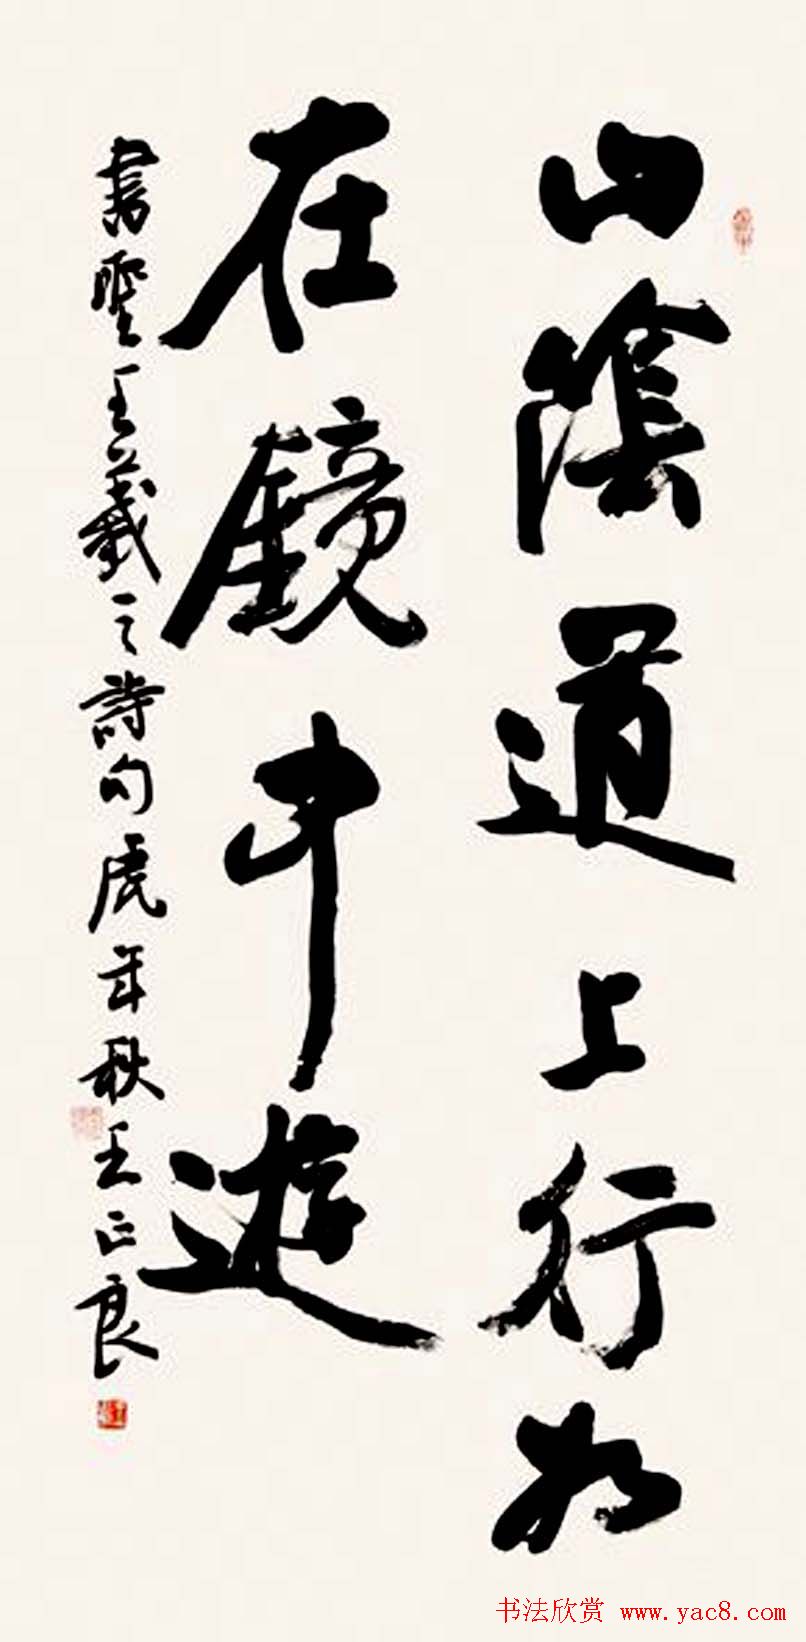 山陰道上行如
在鏡中遊
書聖王羲之詩句虎年秋王正良
书法欣赏 www.yac8.com